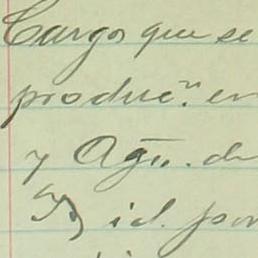 Cargos que se
produc.n en
y Ago. de
id. por